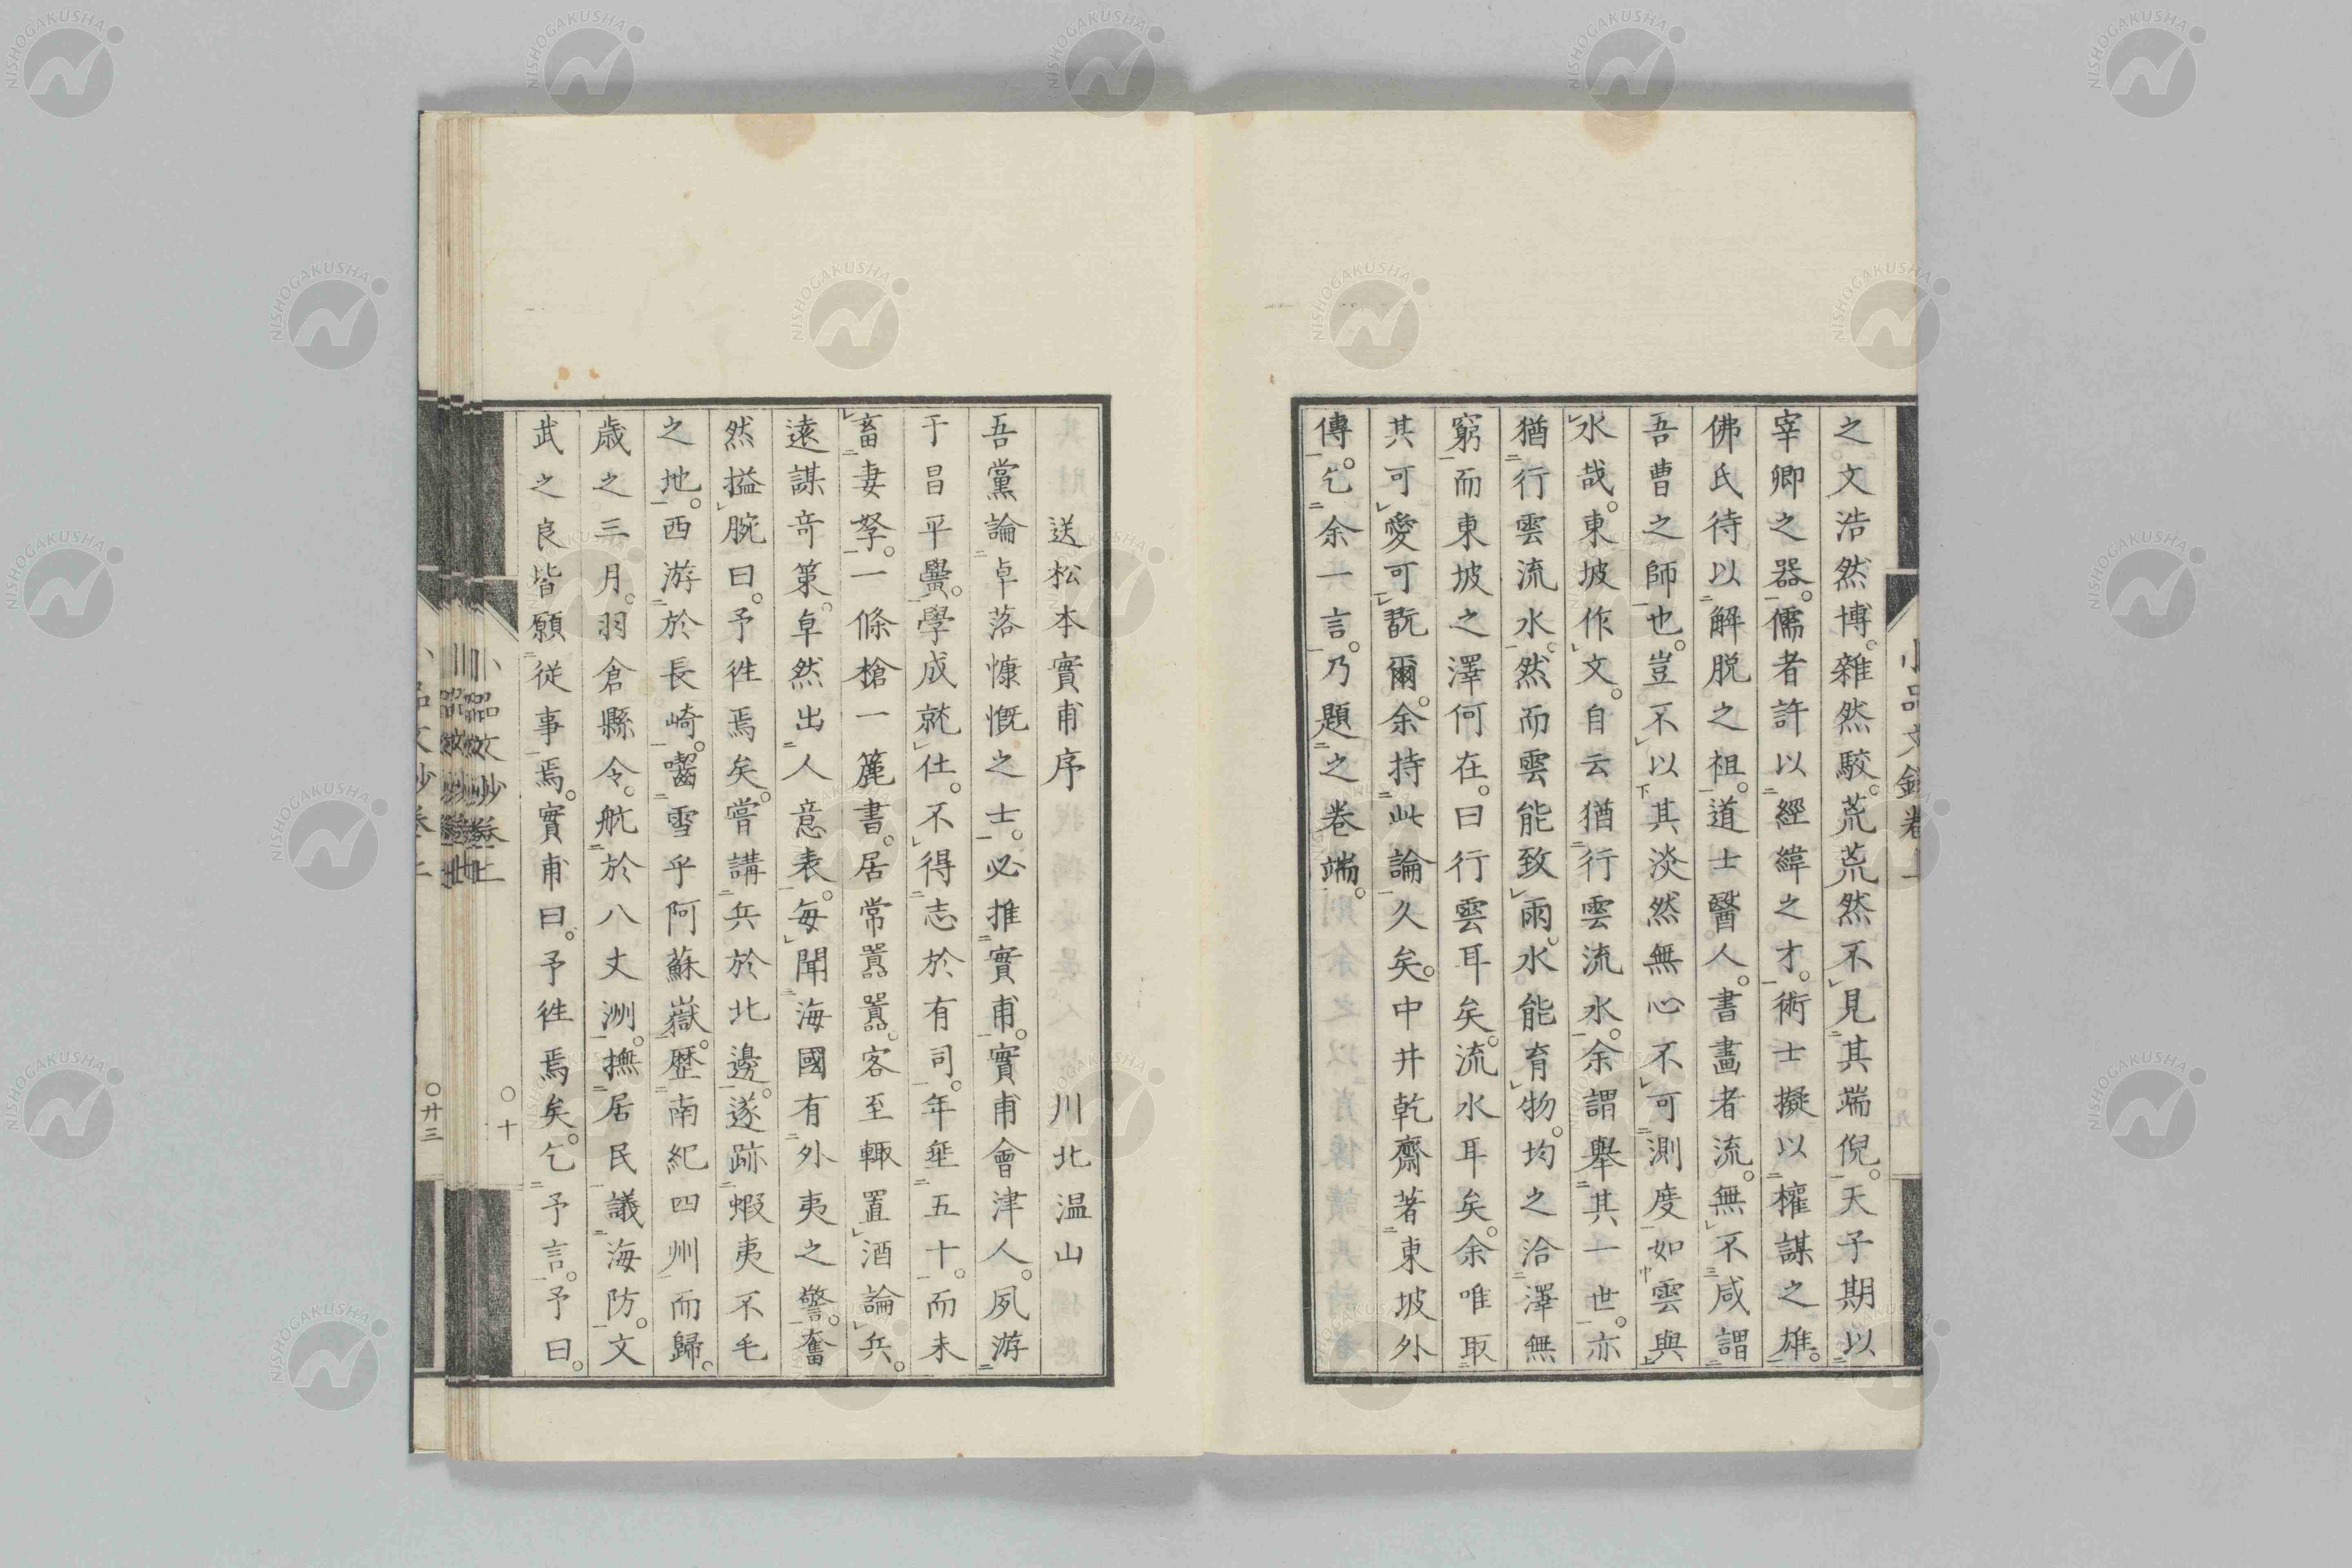 之文浩然博。雜然駁。荒荒然不見其端倪。天子期以
宰卿之器。儒者許以經緯之才。術士擬以權謀之雄。
佛氏待以解脱之祖。道士醫人。書畵者流。無不咸謂
吾曹之師也。豈不以其淡然無心不可測度如雲與
水哉。東坡作文。自云猶行雲流水。余謂舉其一世。亦
猶行雲流水。然而雲能致雨。水能育物。均之洽澤無
窮而東坡之澤何在。曰行雲耳矣。流水耳矣。余唯取
其可愛可翫爾。余持此論久矣。中井乾齋著東坡外
傳。乞余一言。乃題之巻端。
送松本實甫序 川北温山
吾黨論卓落慷慨之士。必推實甫。實甫會津人。夙游
于昌平黌。學成就仕。不得志於有司。年埀五十。而未
畜妻孥。一條槍一簏書。居常嚣嚣。客至輙置酒論兵。
遠謀竒策。卓然出人意表。毎聞海國有外夷之警。奮
然搤腕曰。予徃焉矣。嘗講兵於北邊。遂跡蝦夷不毛
之地。西游於長崎。囓雪乎阿蘇嶽。歴南紀四州而歸。
歳之三月。羽倉縣令。航於八丈洲。撫居民議海防。文
武之良皆願從事焉。實甫曰。予徃焉矣。乞予言。予曰。
小品文鈔巻上
〇十
〇廿三
NISHOGAKUSHA